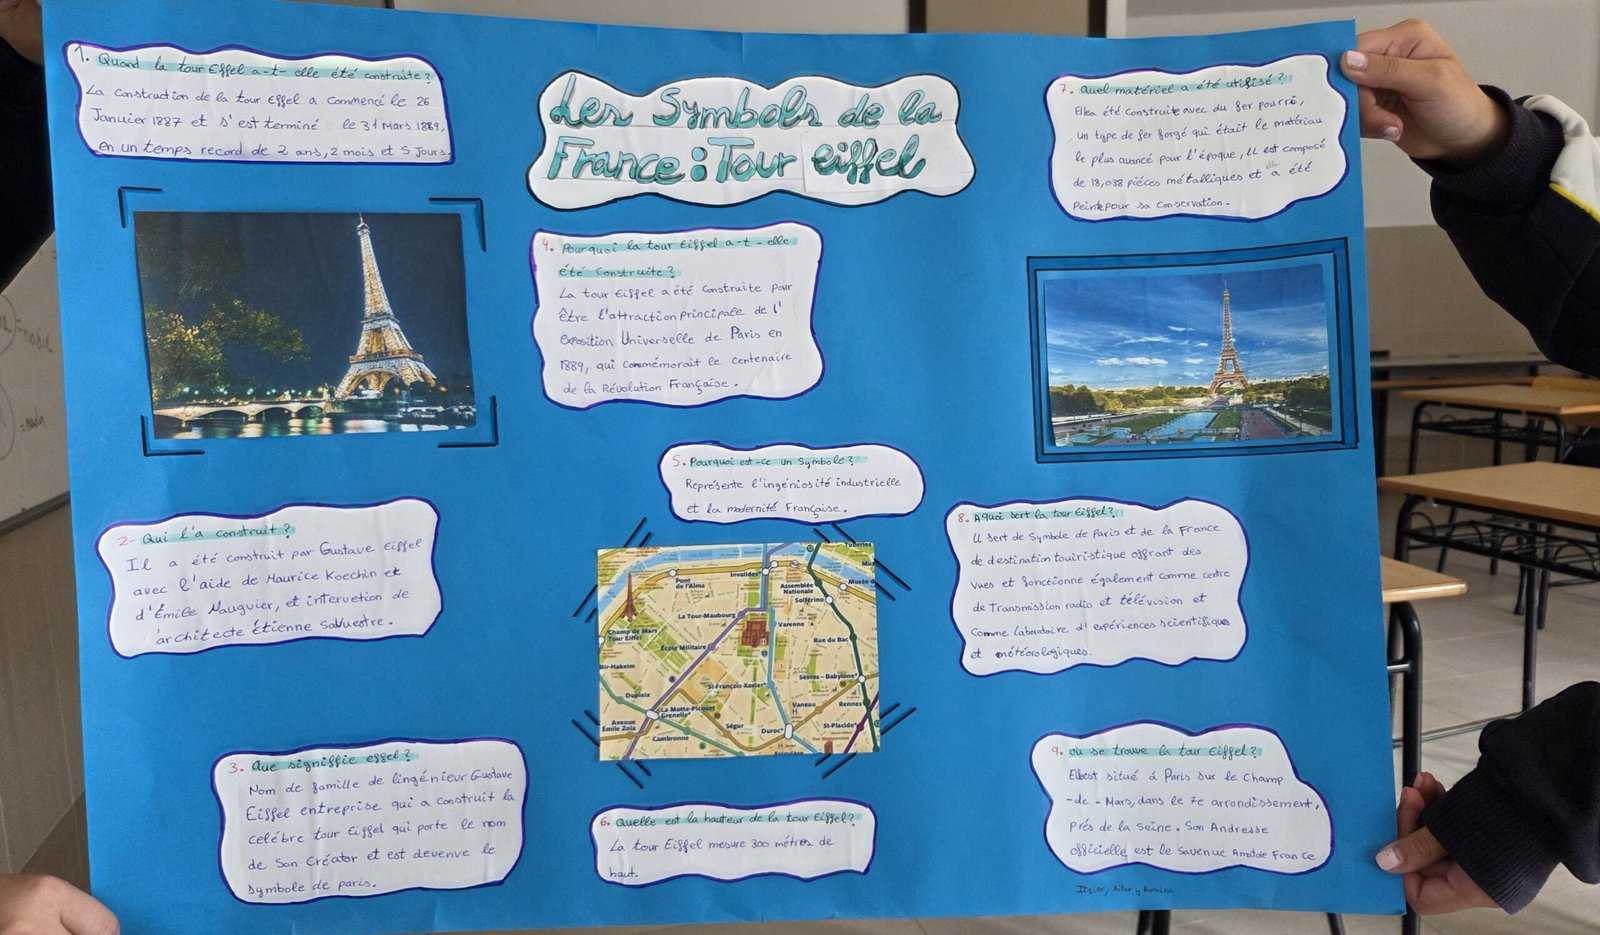 Les Symbols de la
France: Tour eiffel
1. Quand la tour Eiffel a-t-elle été construite?
La construction de la tour Eiffel a commencé le 26
Janvier 1887 et s'est terminé le 31 Mars 1889,
en un temps record de 2 ans, 2 mois et 5 Jours.
2- Qui l'a construit?
Il a été construit par Gustave Eiffel
avec l'aide de Maurice Koechin et
d'Émile Nauguier, et intervetion de
architecte Étienne Sauvestre.
3. Que signiffie effel?
Nom de famille de lingénieur Gustave
Eiffel entreprise qui a construit la
celébre tour Eiffel qui porte le nom
de Son Créator et est devenve le
symbole de paris.
4. Pourquoi la tour Eiffel a-t-elle
été construite?
La tour Eiffel a été construite pour
être l'attraction principale de l'
exposition Universelle de Paris en
1889, qui commémorait le centenaire
de la Révolution Française.
5. Pourquoi est-ce un Symbole?
Représente l'ingéniosité industrielle
et la modernité Française.
Pont
de l'Alma
Invalides
Assemblée
Nationale
Solférino
Tuileries
Musée d
La Tour-Maubourg
Varenne
Champ de Mars
Tour Eiffel
École Militaire
Rue du Bac
Bir-Hakeim
St-François-Xavier
Sèvres-Babylone
Dupleix
Vaneau
Rennes
La Motte-Picquet
Grenelle
Avenue
Émile Zola
Ségur
Duroc
St-Placide
Cambronne
6. Quelle est la hauteur de la tour Eiffel?
La tour Eiffel mesure 300 métres de
haut.
7. Quel matériel a été utilisé?
Elle a été construite avec du fer pourré,
un type de fer forgé qui était le matériau
le plus avancé pour l'époque, LL est composé
de 18,038 piéces métalliques et elle a été
peinte pour sa conservation.
8. A quoi sert la tour Eiffel?
LL sert de Symbole de Paris et de la France
de destination touiristique offrant des
vues et foncionne également comme centre
de Transmission radio et télévision et
comme laboratoire d'expériences scientifiques
et météorologiques.
9. où se trouve la tour Eiffel?
Ellest situé á Paris sur le Champ
-de-Mars, dans le 7e arrondissement,
prés de la seine. Son Andresse
officielle est le 5avenue Anatole France
Itziar, Aitor y Romina.